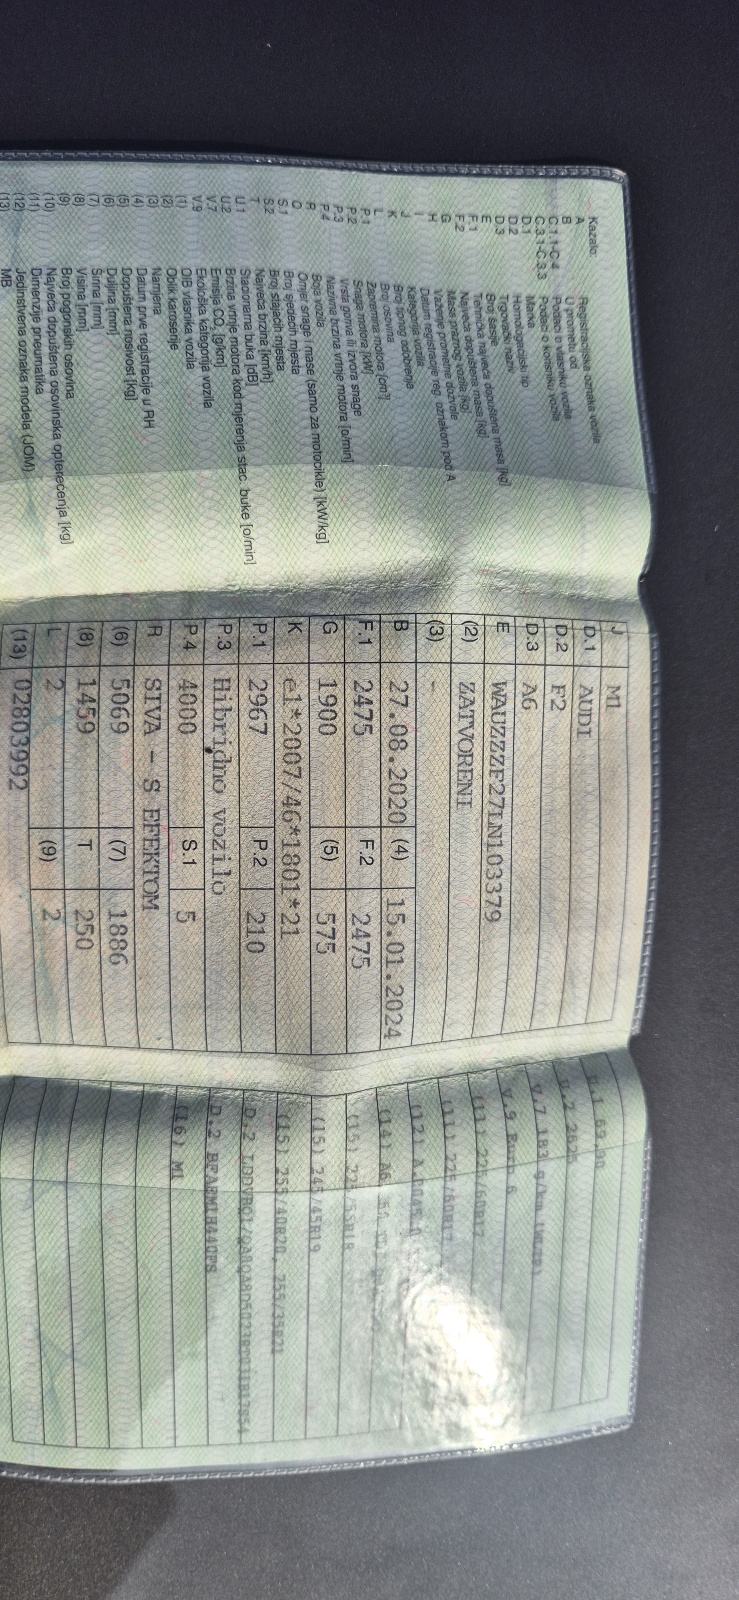 Kazalo:
A Registracijska oznaka vozila
B U prometu od
C.1.1-C.4 Podaci o vlasniku vozila
C.3.1-C.3.3 Podaci o korisniku vozila
D.1 Marka
D.2 Homologacijski tip
D.3 Trgovački naziv
E Broj šasije
F.1 Tehnička najveća dopuštena masa [kg]
F.2 Najveća dopuštena masa [kg]
G Masa praznog vozila [kg]
H Važenje prometne dozvole
I Datum registracije reg. oznakom pod A
J Kategorija vozila
K Broj tipnog odobrenja
L Broj osovina
P.1 Zapremina motora [cm³]
P.2 Snaga motora [kW]
P.3 Vrsta goriva ili izvora snage
P.4 Nazivna brzina vrtnje motora [o/min]
R Boja vozila
Q Omjer snage i mase (samo za motocikle) [kW/kg]
S.1 Broj sjedećih mjesta
S.2 Broj stajaćih mjesta
T Najveća brzina [km/h]
U.1 Stacionarna buka [dB]
U.2 Brzina vrtnje motora kod mjerenja stac. buke [o/min]
V.7 Emisija CO₂ [g/km]
V.9 Ekološka kategorija vozila
(1) OIB vlasnika vozila
(2) Oblik karoserije
(3) Namjena
(4) Datum prve registracije u RH
(5) Dopuštena nosivost [kg]
(6) Duljina [mm]
(7) Širina [mm]
(8) Visina [mm]
(9) Broj pogonskih osovina
(10) Najveća dopuštena osovinska opterećenja [kg]
(11) Dimenzije pneumatika
(12) Jedinstvena oznaka modela (JOM)
(13) MB
J M1
D.1 AUDI
D.2 F2
D.3 A6
E WAUZZZF27LN103379
(2) ZATVORENI
(3) -
B 27.08.2020 (4) 15.01.2024
F.1 2475 F.2 2475
G 1900 (5) 575
K e1*2007/46*1801*21
P.1 2967 P.2 210
P.3 Hibridno vozilo
P.4 4000 S.1 5
R SIVA - S EFEKTOM
(6) 5069 (7) 1886
(8) 1459 T 250
L 2 (9) 2
(13) 02803992
U.1 69.00
U.2 2625
V.7 183 g/km (WLTP)
V.9 Euro 6
(11) 225/60R17
(11) 225/60R17
(12)
(14) A6
(15) 225/55R18
(15) 245/45R19
(15) 255/40R20, 255/35R21
D.2
D.2
(16) M1